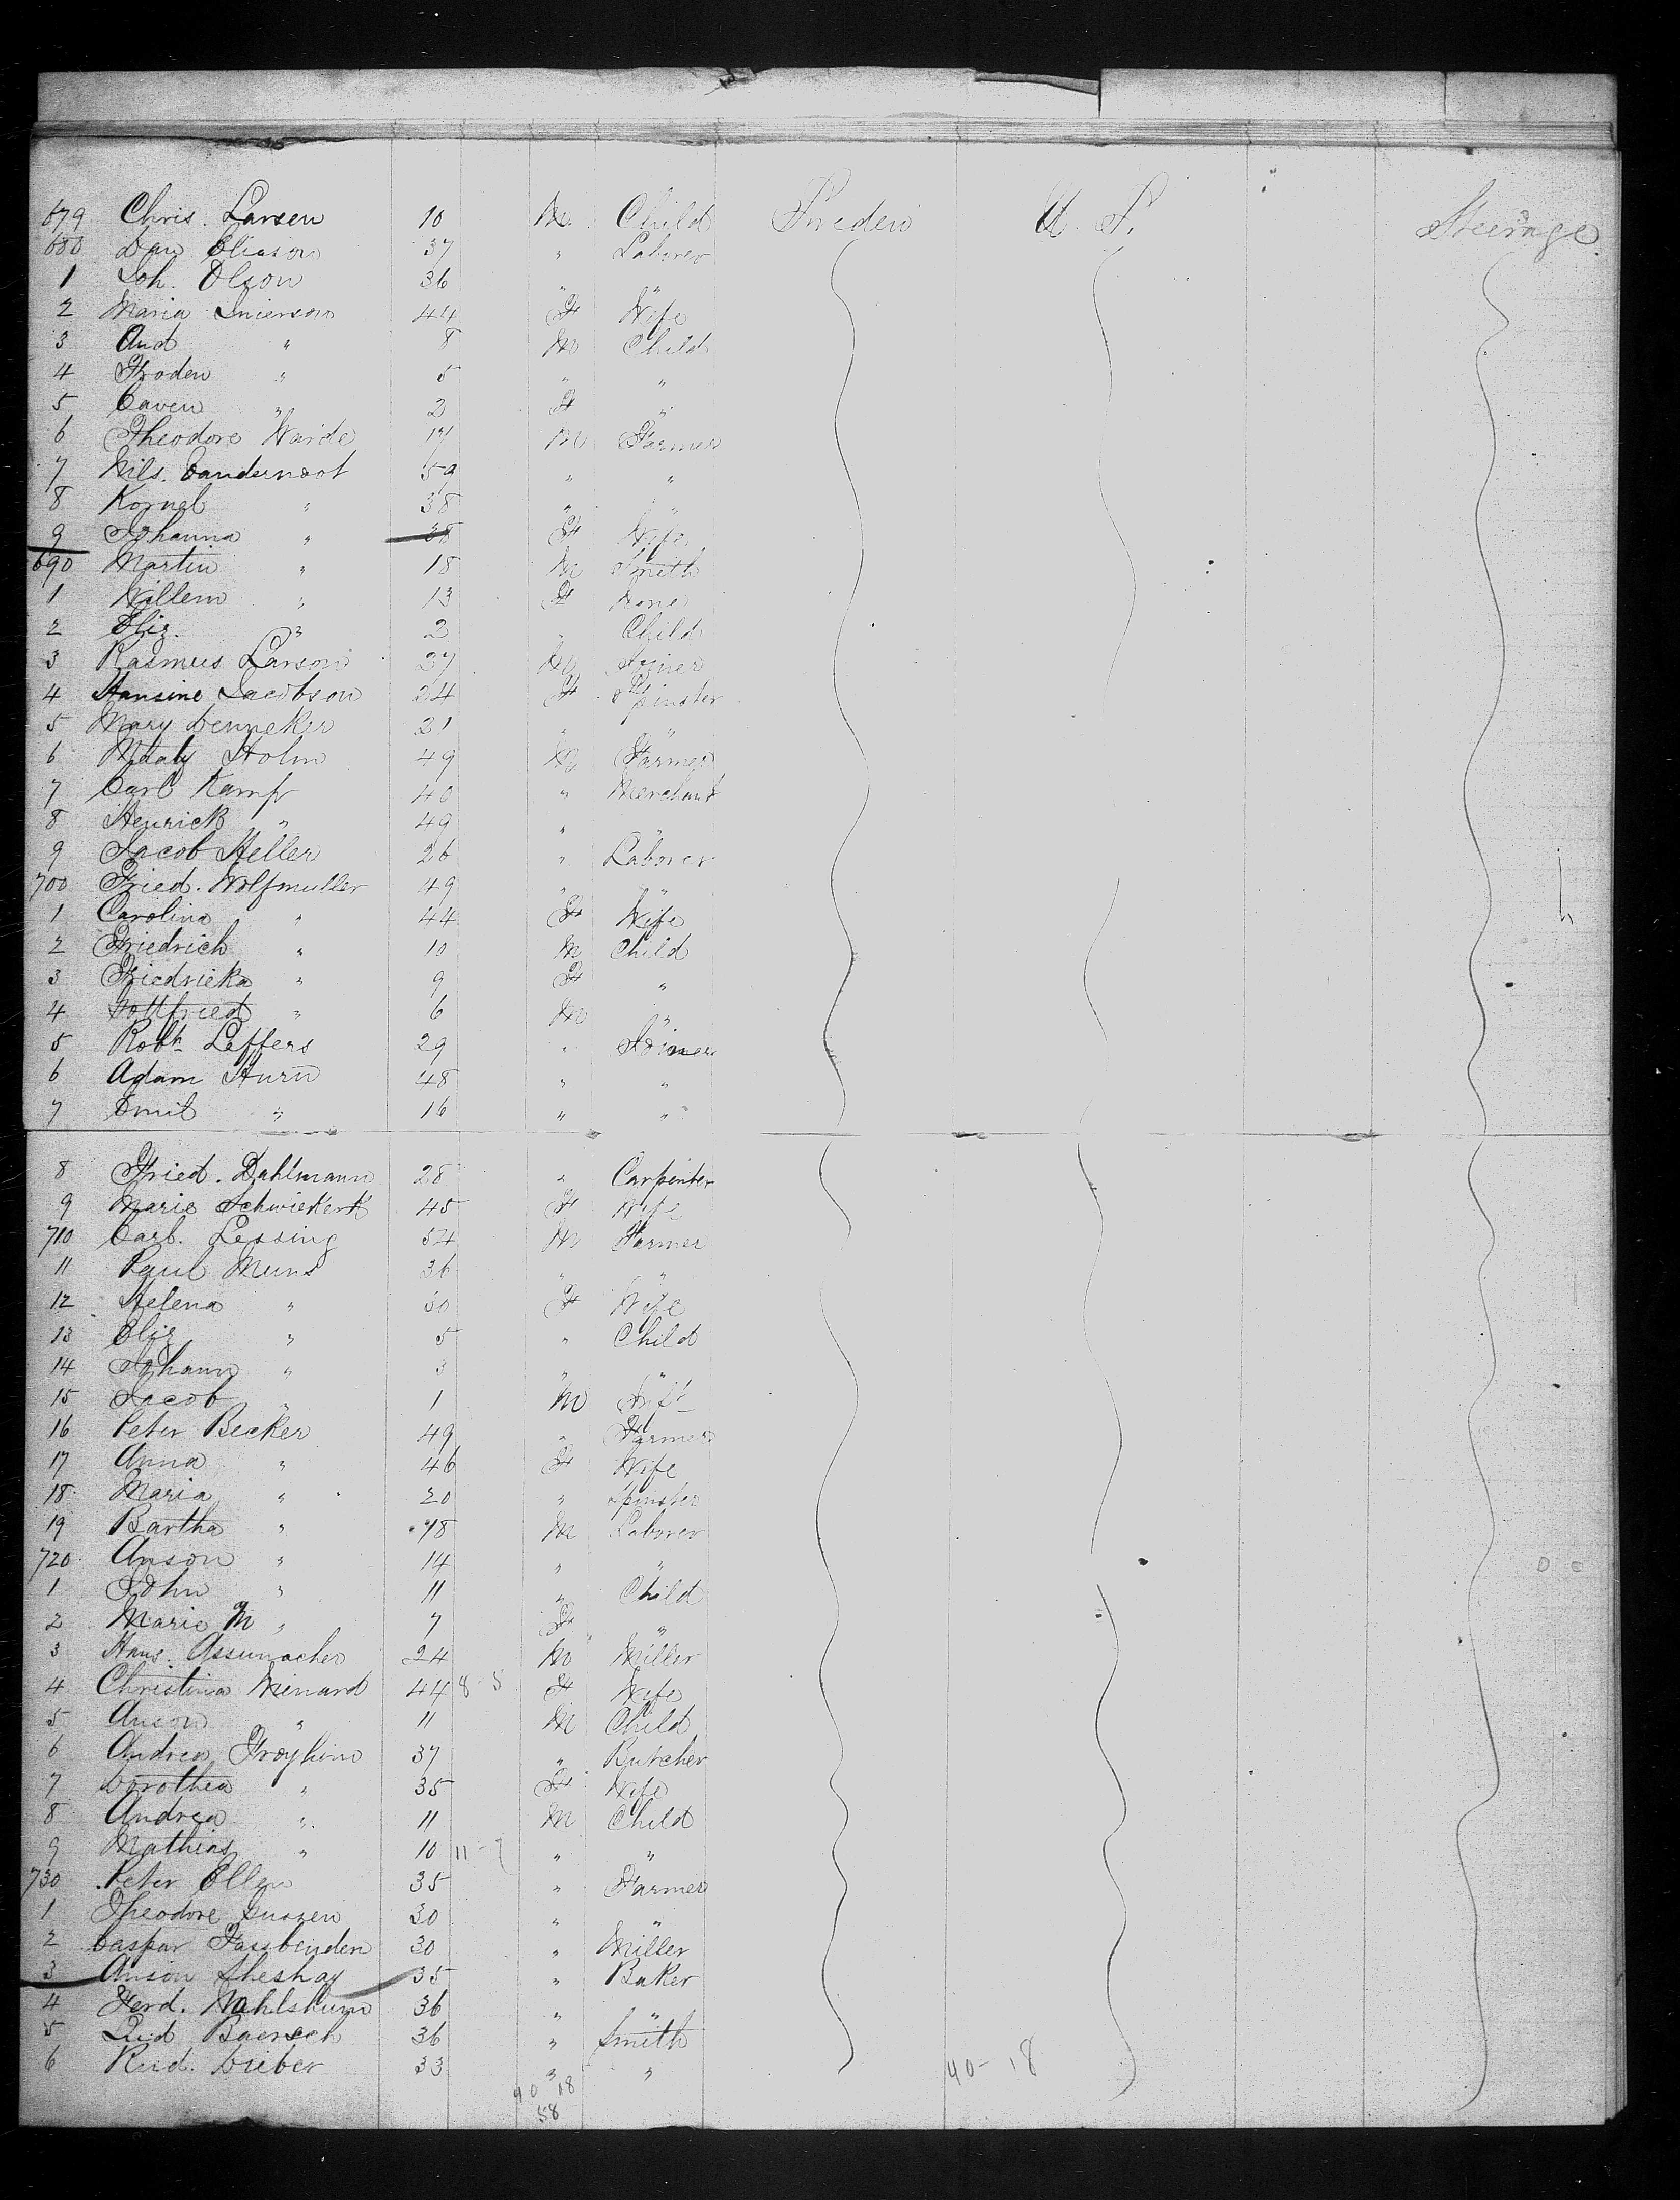 679 Chris. Larsen 10 M. Child Sweden U. S. Steerage
680 Dan Eliason 37 " Laborer
1 Joh. Olson 36 " "
2 Maria 44 F Wife
3 And " 8 M Child
4 Froden " 5 " "
5 Caven " 2 F "
6 Theodore Warde M Farmer
7 Nils. Candernoot 59 " "
8 Kornel " 38 " "
9 Johanna " 38 F Wife
690 Martin " 18 M Smith
1 Willem " 13 F None
2 Eliz. " 2 " Child
3 Rasmus Larson 37 M Joiner
4 Hansine Jacobson 24 F Spinster
5 Mary Denneker 21 " "
6 Holm 49 M Farmer
7 Carl Kamp 40 " Merchant
8 Henrick " 49 " "
9 Jacob Heller 26 " Laborer
700 Fried. Wolfmuller 49 " "
1 Carolina " 44 F Wife
2 Friedrich " 10 M Child
3 Friedrieka " 9 F "
4 Gottfried " 6 M "
5 Robt Leffers 29 " Joiner
6 Adam Hurn 48 " "
7 Emil " 16 " "
8 Fried. Dahlmann 28 " Carpenter
9 Marie Schwiekert 45 F Wife
710 Carl. Lessing 54 M Farmer
11 Paul Muns 36 " "
12 Helena " 30 F Wife
13 Eliz " 5 " Child
14 Johann " 3 " "
15 Jacob " 1 M Inft
16 Peter Becker 49 " Farmer
17 Anna " 46 F Wife
18 Maria " 20 " Spinster
19 Bartha " 18 M Laborer
720 Anson " 14 " "
1 John " 11 " Child
2 Marie M " 7 F "
3 Hans. Assumacher 24 M Miller
4 Christina Wienard 44 8-5 F Wife
5 Anson " 11 M Child
6 Andrea Froyhinn 37 " Butcher
7 Dorothea " 35 F Wife
8 Andrea " 11 M Child
9 Mathias " 10 " "
730 Peter Ellen 35 " Farmer
1 Theodore Gussen 30 " "
2 Caspar Fassbenden 30 " Miller
3 Anson Sheshay 35 " Baker
4 Ferd. Wahlshum 36 " "
5 Lud Baersch 36 " Smith
6 Rud. Duber 33 " "
40 18 40-18
58